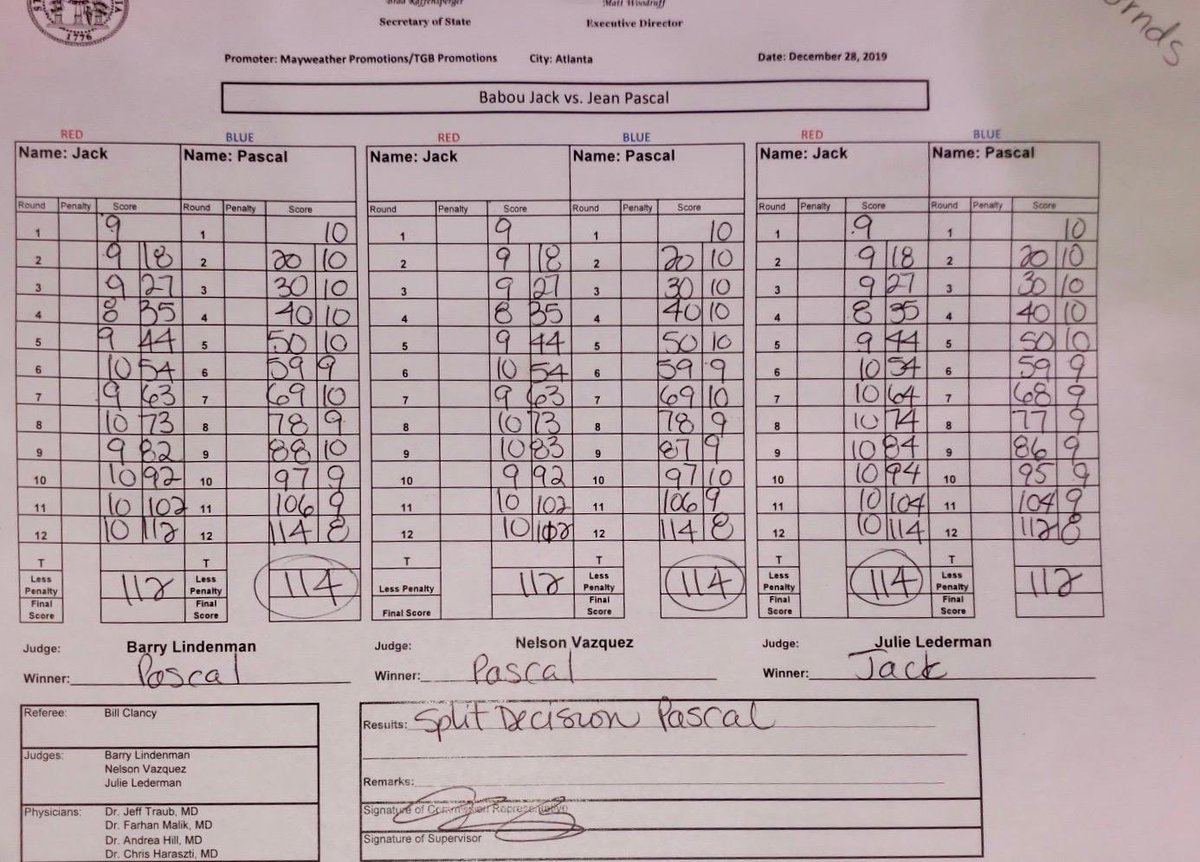 1776
Brad Raffensperger Matt Woodruff
Secretary of State Executive Director
Promoter: Mayweather Promotions/TGB Promotions City: Atlanta Date: December 28, 2019
Babou Jack vs. Jean Pascal
RED BLUE RED BLUE RED BLUE
Name: Jack Name: Pascal Name: Jack Name: Pascal Name: Jack Name: Pascal
Round Penalty Score Round Penalty Score Round Penalty Score Round Penalty Score Round Penalty Score Round Penalty Score
1 9 1 10 1 9 1 10 1 9 1 10
2 9 18 2 20 10 2 9 18 2 20 10 2 9 18 2 20 10
3 9 27 3 30 10 3 9 27 3 30 10 3 9 27 3 30 10
4 8 35 4 40 10 4 8 35 4 40 10 4 8 35 4 40 10
5 9 44 5 50 10 5 9 44 5 50 10 5 9 44 5 50 10
6 10 54 6 59 9 6 10 54 6 59 9 6 10 54 6 59 9
7 9 63 7 69 10 7 9 63 7 69 10 7 10 64 7 68 9
8 10 73 8 78 9 8 10 73 8 78 9 8 10 74 8 77 9
9 9 82 9 88 10 9 10 83 9 87 9 9 10 84 9 86 9
10 10 92 10 97 9 10 9 92 10 97 10 10 10 94 10 95 9
11 10 102 11 106 9 11 10 102 11 106 9 11 10 104 11 104 9
12 10 112 12 114 8 12 10 102 12 114 8 12 10 114 12 112 8
T T T T T T
Less Penalty 112 Less Penalty 114 Less Penalty 112 Less Penalty 114 Less Penalty 114 Less Penalty 112
Final Score Final Score Final Score Final Score Final Score Final Score
Judge: Barry Lindenman Judge: Nelson Vazquez Judge: Julie Lederman
Winner: Pascal Winner: Pascal Winner: Jack
Referee: Bill Clancy
Results: Split Decision Pascal
Judges: Barry Lindenman
Nelson Vazquez
Julie Lederman
Remarks:
Physicians: Dr. Jeff Traub, MD
Dr. Farhan Malik, MD
Dr. Andrea Hill, MD
Dr. Chris Haraszti, MD
Signature of Commission Representative
Signature of Supervisor